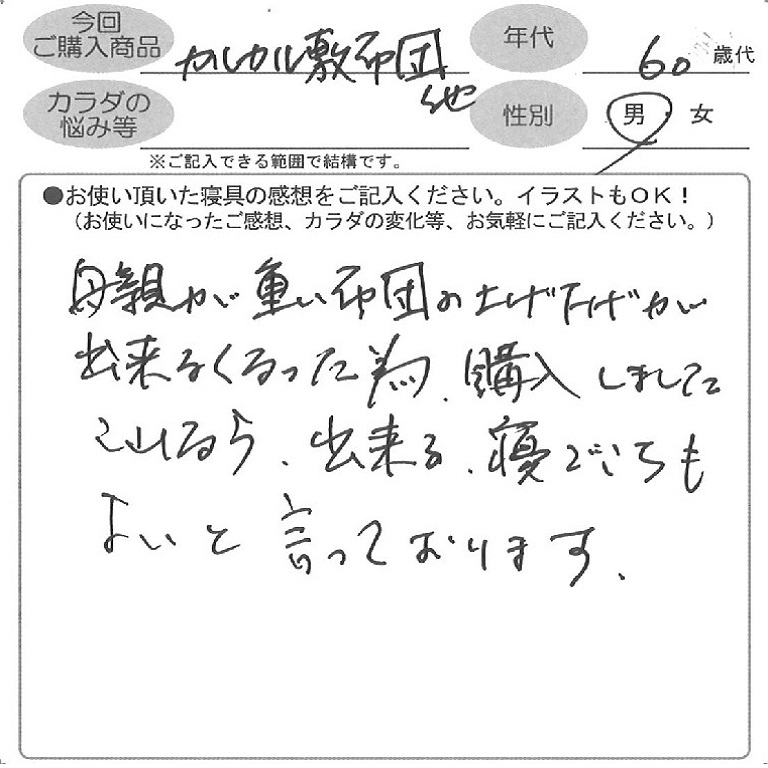 今回
ご購入商品
カルカル敷布団
他
年代
60 歳代
カラダの
悩み等
性別
男・女
※ご記入できる範囲で結構です。
●お使い頂いた寝具の感想をご記入ください。イラストもOK!
(お使いになったご感想、カラダの変化等、お気軽にご記入ください。)
母親が重い布団の上げ下げが
出来なくなった為、購入しました
これなら、出来る、寝ごこちも
よいと言っております、